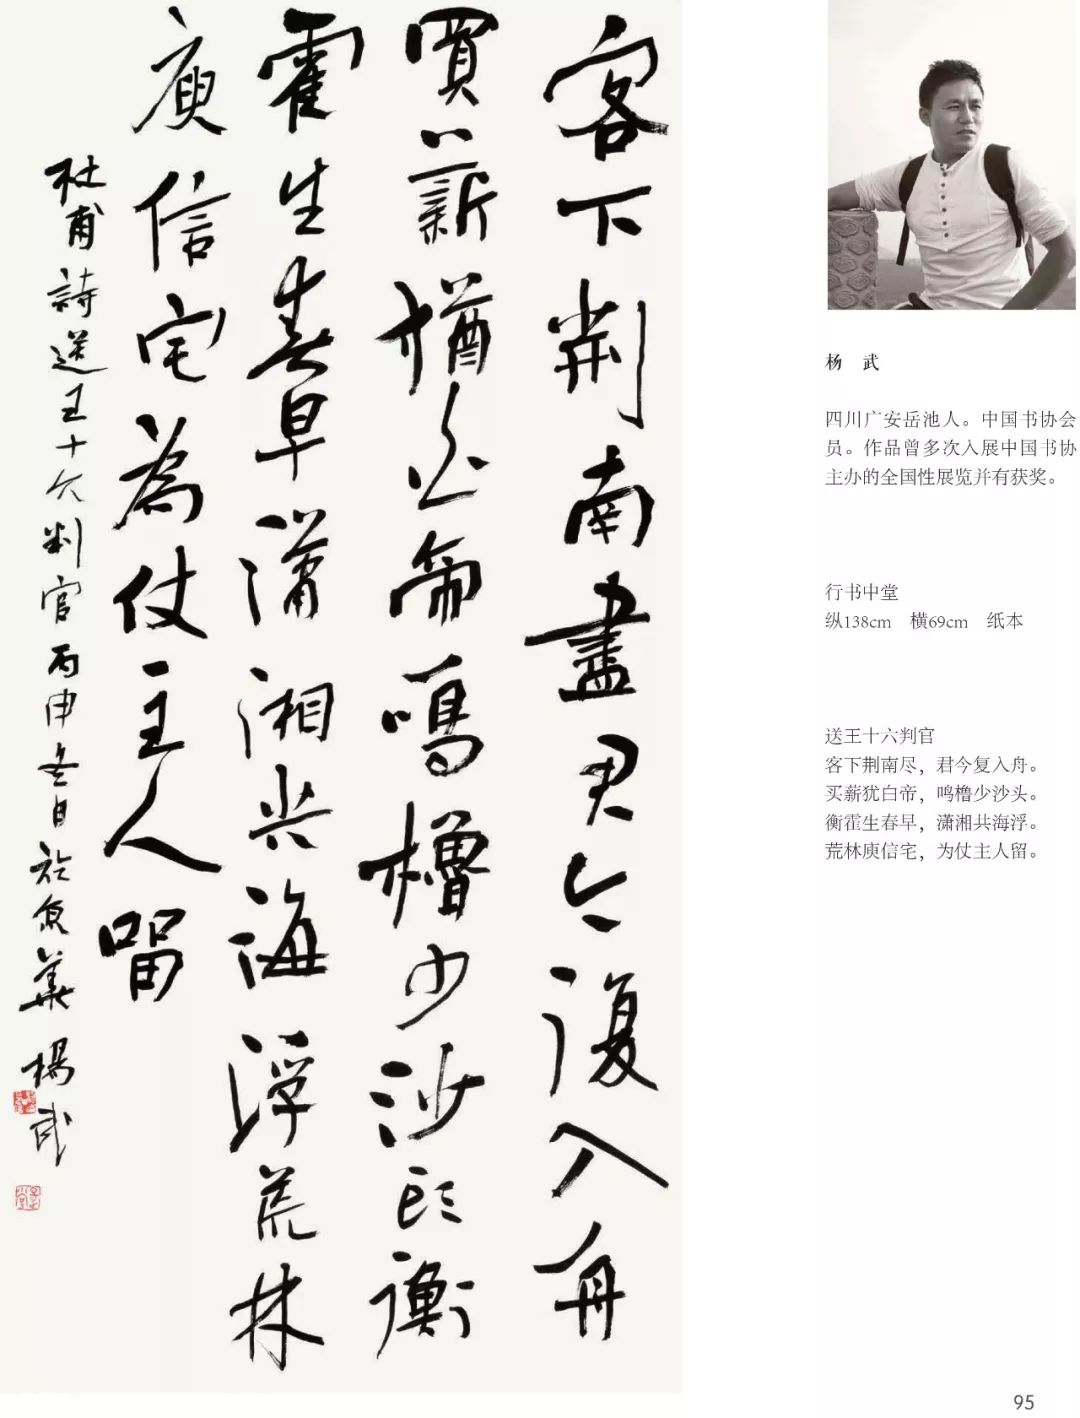 客下荆南盡君今復入舟
買薪猶白帝鳴櫓少沙頭衡
霍生春早瀟湘共海浮荒林
庾信宅為仗主人留
杜甫詩送王十六判官丙申冬日於京華楊武
杨 武
四川广安岳池人。中国书协会
员。作品曾多次入展中国书协
主办的全国性展览并有获奖。
行书中堂
纵138cm 横69cm 纸本
送王十六判官
客下荆南尽，君今复入舟。
买薪犹白帝，鸣橹少沙头。
衡霍生春早，潇湘共海浮。
荒林庾信宅，为仗主人留。
95